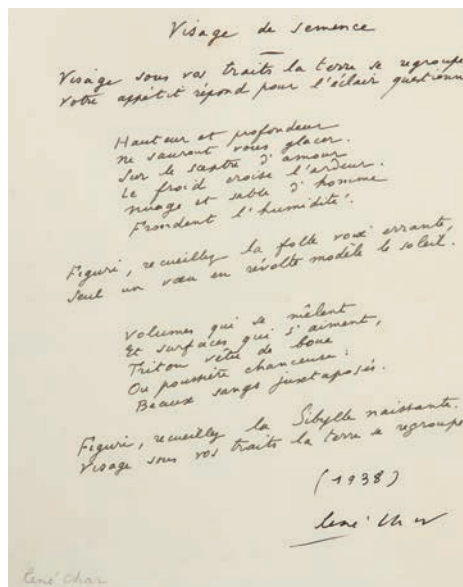 Visage de semence
Visage sous vos traits la terre se regroupe
Votre appétit répond pour l'éclair questionn
Hauteur et profondeur
Ne sauront vous glacer.
Sur le sceptre d'amour
Le froid croise l'ardeur.
Nuage et sable d'homme
Frondent l'humidité.
Figuri, recueillez la folle voix errante,
Seul un vœu en révolte modèle le soleil.
Volumes qui se mêlent
Et surfaces qui s'aiment,
Triton vêtu de boue
Ou poussière chanceuse :
Beaux sangs juxtaposés.
Figuri, recueillez la Sibylle naissante.
Visage sous vos traits la terre se regroupe
(1938)
René Char
René Char